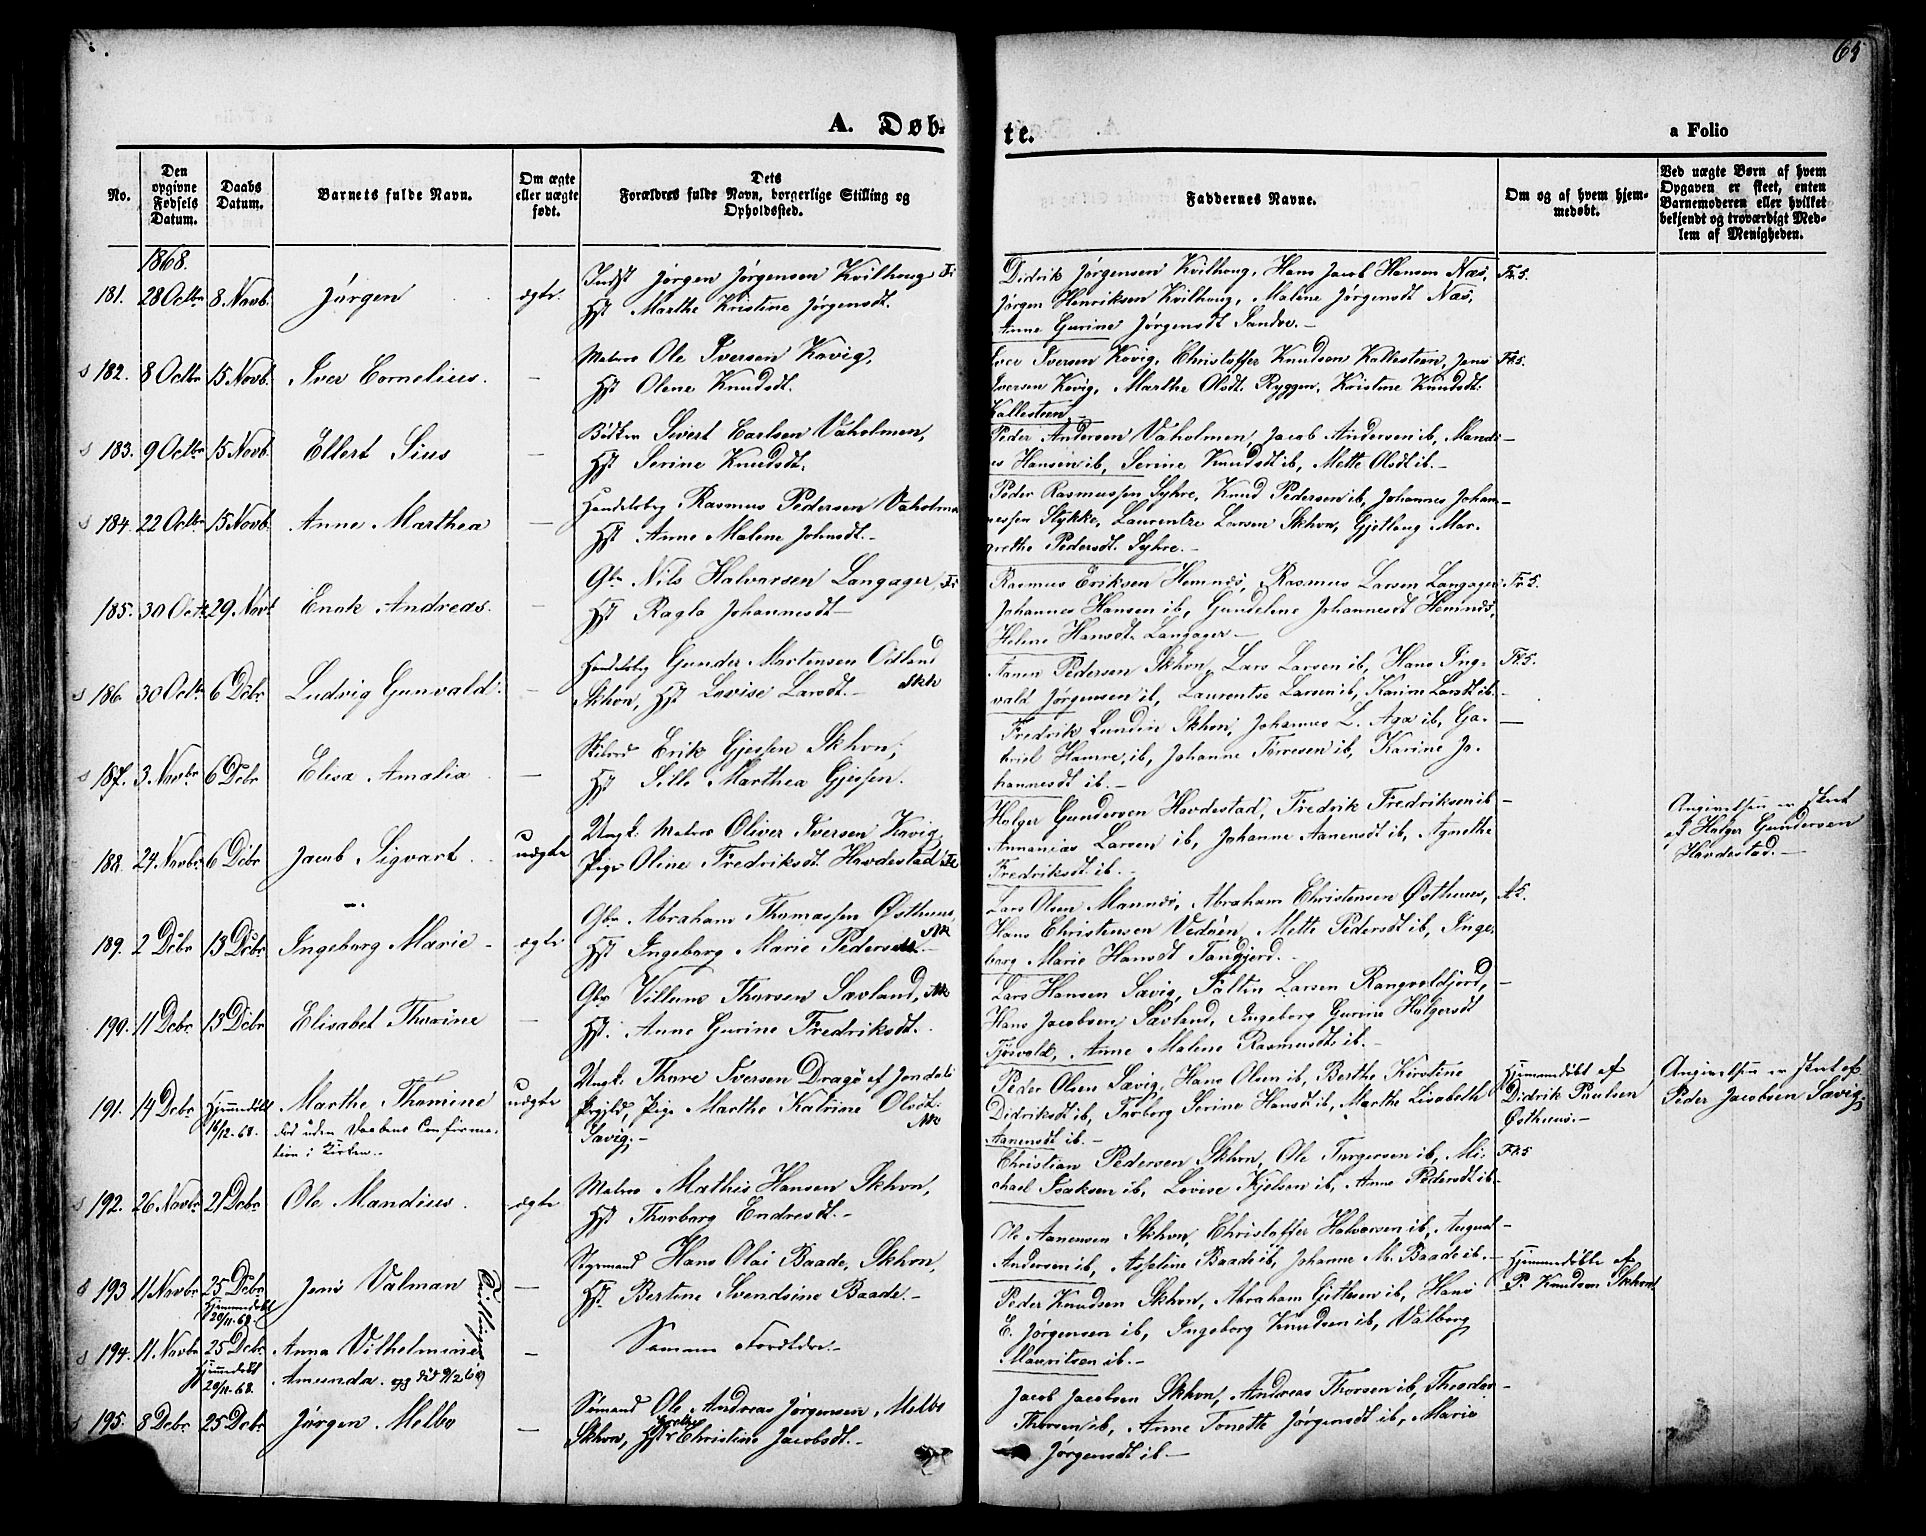 65
A. Døbte.
a Folio
No.
Den opgivne Fødsels Datum.
Daabs Datum.
Barnets fulde Navn.
Om ægte eller uægte født.
Dets Forældres fulde Navn, borgerlige Stilling og Opholdssted.
Faddernes Navne.
Om og af hvem hjemmedøbt.
Ved uægte Børn af hvem Opgaven er skeet, enten Barnemoderen eller hvilket bekjendt og troværdigt Medlem af Menigheden.
1868.
181. 28 Octbr 8. Novb. Jørgen ægte. Indst Jørgen Jørgensen Kvilhoug
Hst Marthe Kristine Jørgensdt.
Didrik Jørgensen Kvilhoug, Hans Jacob Hansen Næs,
Jørgen Henriksen Kvilhoug, Malene Jørgensdt Næs,
Anne Gurine Jørgensdt Sandve.-
182. 8 Octbr 15 Novb. Iver Cornelius. - Matros Ole Iversen Kovig,
Hst Olene Knudsdt.
Iver Iversen Kovig, Christoffer Knudsen Kallesteen, Jens
Iversen Kovig, Marthe Olsdt. Ryggen, Kristine Knudsdt.
Kallesteen-
183. 9 Octbr 15 Novb. Ellert Sius - Bødker Sivert Carlsen Vaholmen,
Hst Serine Knudsdt.
Peder Andersen Vaholmen, Jacob Andersen ib, Mandi-
us Hansen ib, Serine Knudsdt ib, Mette Olsdt ib.-
184. 22 Octbr 15 Novb. Anne Marthea - Handelsbg Rasmus Pedersen Vaholmen
Hst Anne Malene Johnsdt.-
Peder Rasmussen Syhre, Knud Pedersen ib, Johannes Johan-
nessen Stykke, Laurentze Larsen Skhvn, Gjetloug Mar-
grethe Pedersdt. Syhre.-
185. 30 Octb 29 Novb Enok Andreas. - Gbr Nils Halvorsen Langager,
Hst Ragla Johannesdt-
Rasmus Eriksen Hemnes, Rasmus Larsen Langager
Johannes Hansen ib, Gundeline Johannesdt Hemnes,
Helene Hansdt. Langager-
186. 30 Octbr 6 Dcbr Ludvig Gunvald. - Handelsbg Gunder Martensen Odland
Skhvn, Hst Lovise Larsdt.- Skh
Aanen Pedersen Skhvn, Lars Larsen ib, Hans Ing-
vald Jørgensen ib, Laurentse Larsen ib, Karine Larsdt ib.
187. 3. Novbr 6 Dcbr Elisa Amalia - Erik Gjessen Skhvn,
Hst Sille Marthea Gjessen.
Fredrik Lundin Skhvn, Johannes L. Aga ib, Ga-
briel Hamre, ib, Johanne Torresen ib, Karine Jo-
hannesdt ib.-
188. 24. Novbr 6 Dcbr Jacob Sigvart. uægte Ungk. Matros Oliver Iversen Kavig,
Pige Oline Fredriksdt. Havdestad
Holger Gundersen Havdestad, Fredrik Fredriksen ib
Annanias Larsen ib, Johanne Aanensdt ib, Agnethe
Fredriksdt ib.-
Angivelsen er skeet
af Holger Gundersen
Havdestad.-
189. 2 Dcbr 13 Dcbr Ingeborg Marie - ægte Gbr Abraham Thomassen Østhuus,
Hst Ingeborg Marie Pedersdt.-
Lars Olsen Mannes, Abraham Christensen Østhuus,
Hans Christensen Vedøen, Mette Pedersdt ib, Inge-
borg Marie Hansdt Tandjord.-
190. 11 Dcbr 13 Dcbr Elisabet Thorine - Gbr Villums Thorsen Sævland,
Hst. Anne Gurine Fredriksdt.
Lars Hansen Sævig, Faltin Larsen Rangvoldjord,
Hans Jacobsen Sævland, Ingeborg Gurine Holgersdt
Tjøsvold, Anne Malene Rasmusdt ib.-
191. 14 Dcbr Hjemmedøbt 16/12-68. Marthe Thomine
død uden Daabens Confirma-
tion i Kirken..
uægte Ungk. Thore Iversen Dragø af Jondals
Prgjld, Pige Marthe Katrine Olsdt.
Sævig.-
Peder Olsen Sævig, Hans Olsen ib, Berthe Kirstine
Didriksdt ib, Torborg Serine Hansdt ib, Marthe Lisabeth
Aanensdt ib.-
Hjemmedøbt af
Didrik Paulsen
Østhuus.-
Angivelsen er skeet af
Peder Jacobsen Sævig.
192. 26 Novbr 21 Dcbr. Ole Mandius. ægte Matros Mathis Hansen Skhvn,
Hst Thorborg Endresdt.-
Christian Pedersen Skhvn, Ole Torgersen ib, Mi-
chael Isaksen ib, Lovise Kjelsen ib, Anne Pedersdt ib.
193 11 Novbr 25 Dcbr Hjemmedøbt 20/11-68. Jens Valman Tvillinger - Styrmand Hans Olai Baade, Skhvn,
Hst. Bertine Svendsine Baade.-
Ole Aanensen Skhvn, Christoffer Halvorsen ib, August
Andersen ib, Asseline Baade ib, Johanne M. Baade ib.-
Hjemmedøbte af
P. Knudsen Skhvn
194. 11. Novbr 25 Dcbr Hjemmedøbt 20/11-68. Anna Vilhelmine
Amunda. død 9/2 69
- Samme Forældre.-
Peder Knudsen Skhvn, Abraham Gittesen ib, Hans
E. Jørgensen ib, Ingeborg Knudsen ib, Valborg
Mauritsen ib.-
195. 8 Dcbr. 25 Dcbr. Jørgen Melbo - Sømand Ole Andreas Jørgensen Melbo
Skhvn, Hst Christine Jacobsdt.-
Jacob Jacobsen Skhvn, Andreas Thorsen ib, Theodor
Thorsen ib, Anne Tonette Jørgensdt ib, Marie
Jørgensdt ib-